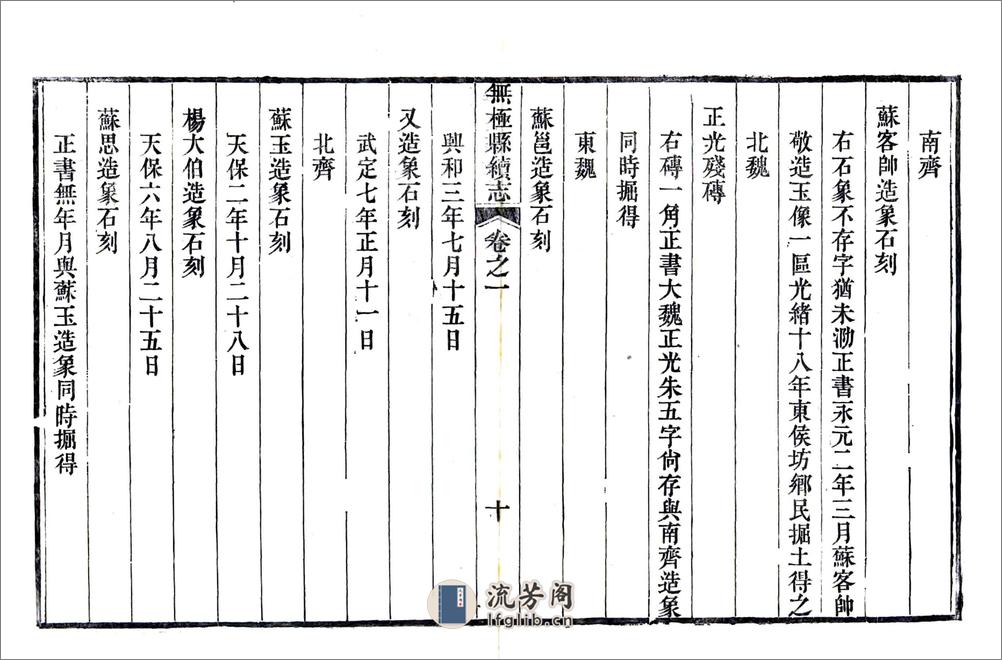 南齊
蘇客帥造象石刻
右石象不存字猶未泐正書永元二年三月蘇客帥
敬造玉像一區光緒十八年東侯坊鄉民掘土得之
北魏
正光殘磚
右磚一角正書大魏正光朱五字尙存與南齊造象
同時掘得
東魏
蘇邕造象石刻
無極縣續志 卷之一 十
興和三年七月十五日
又造象石刻
武定七年正月十一日
北齊
蘇玉造象石刻
天保二年十月二十八日
楊大伯造象石刻
天保六年八月二十五日
蘇思造象石刻
正書無年月與蘇玉造象同時掘得
流芳阁
lfglib.cn